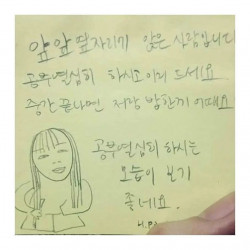 앞앞 옆자리가 앉은 사람입니다
공부열심히 하시고 이거 드세요
중간 끝나면 저랑 밥한끼 어때요
공부열심히 하시는
모습이 보기
좋네요.